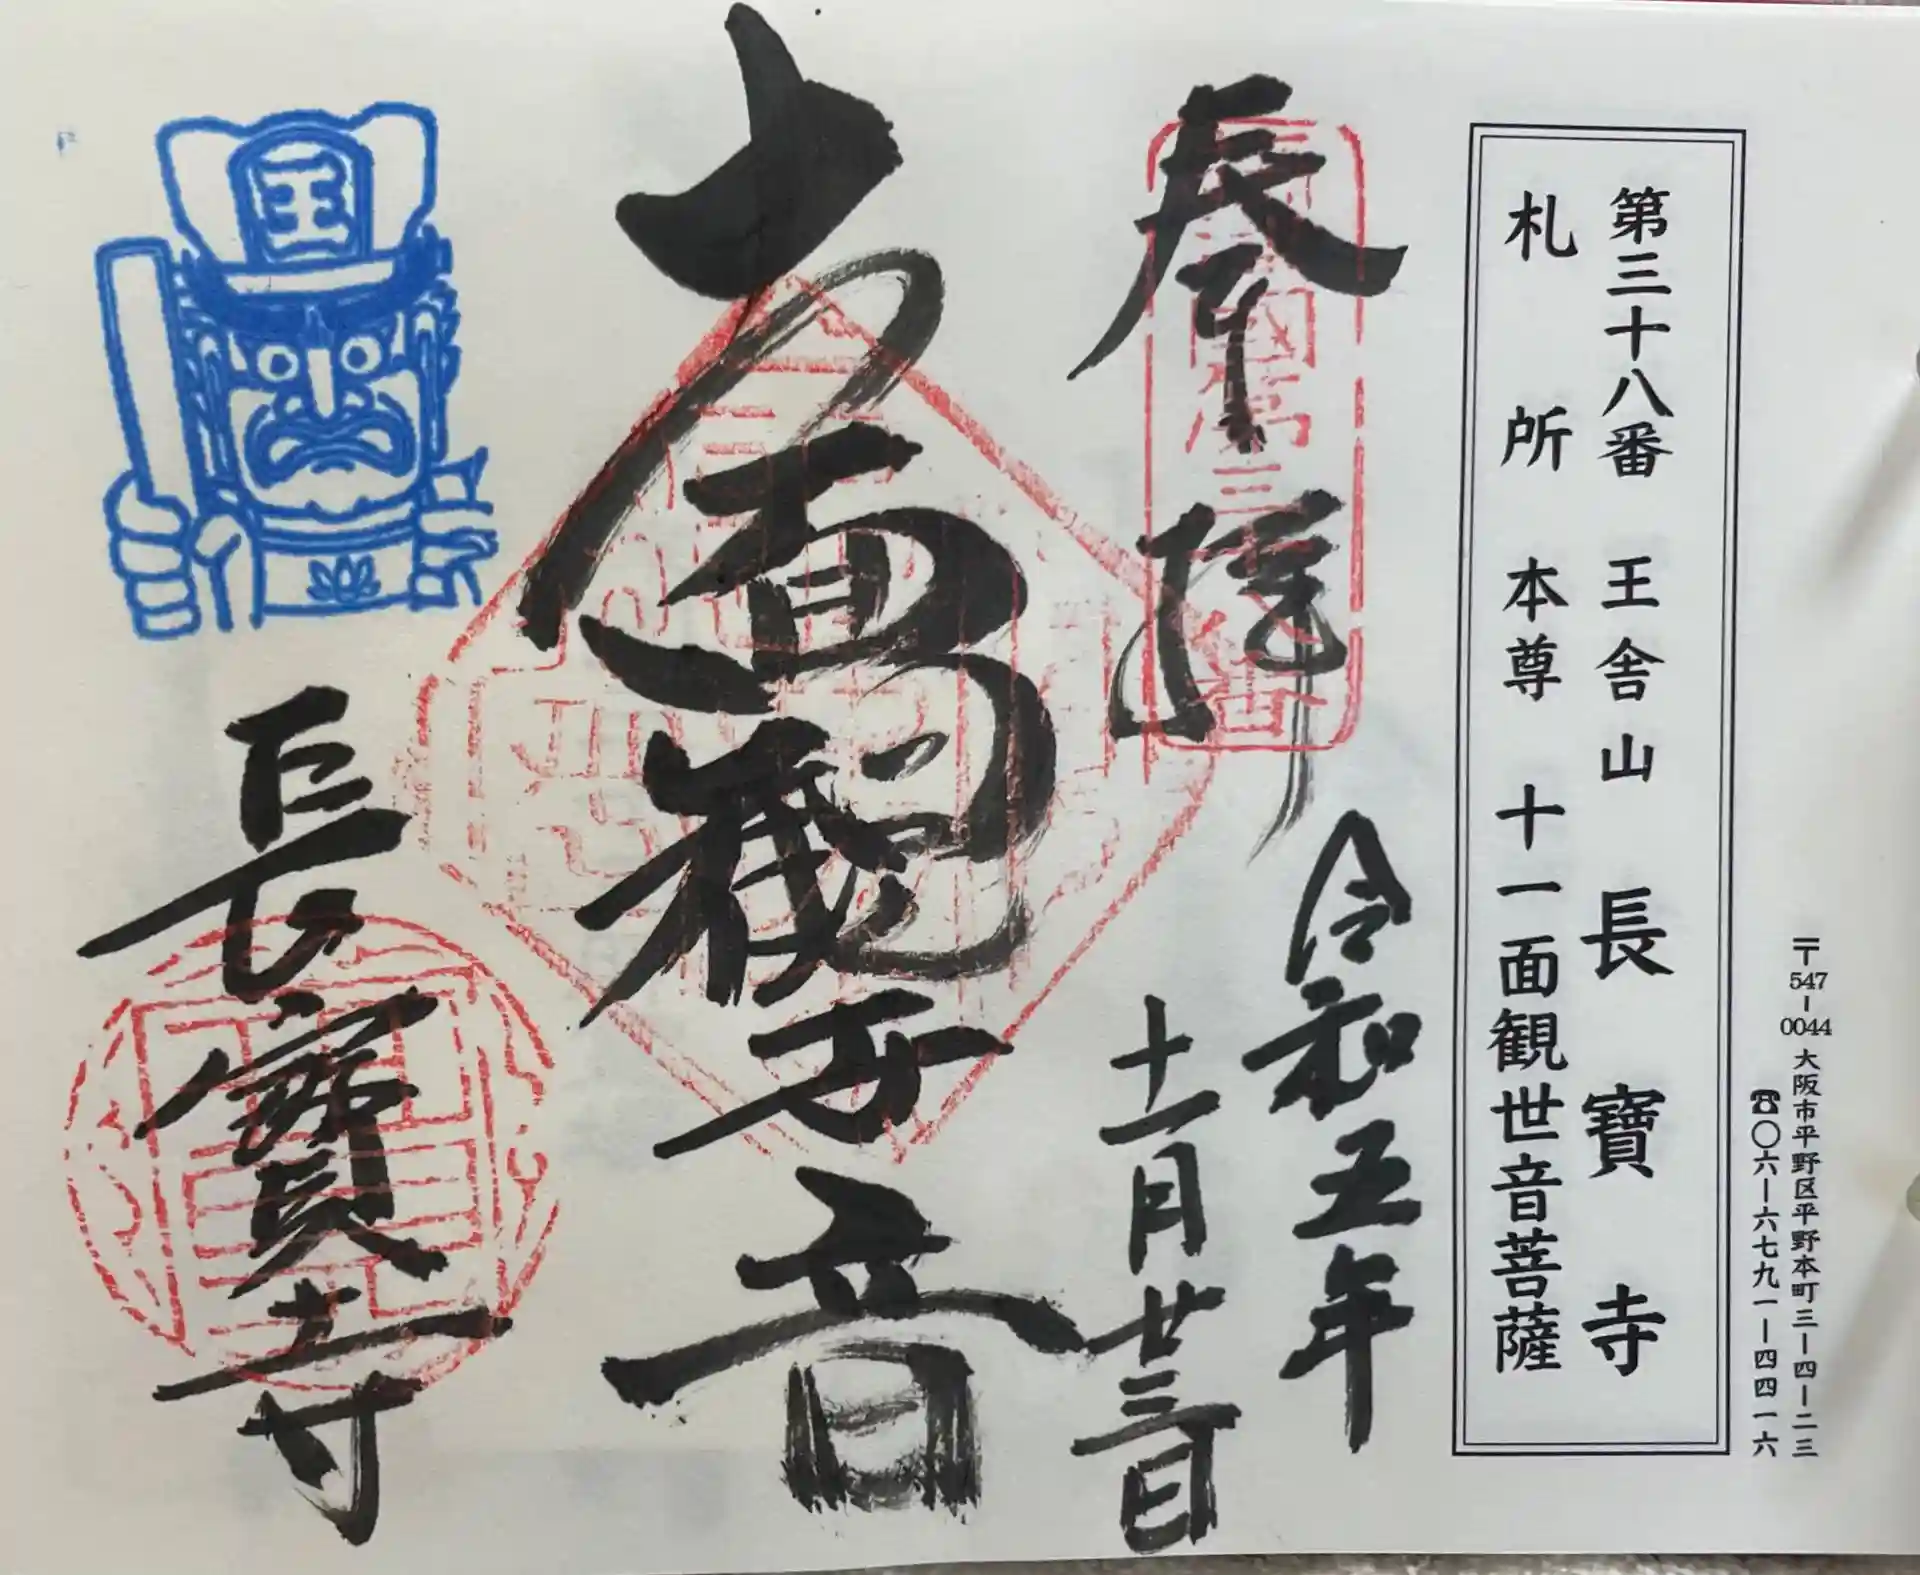 〒547-0044 大阪市平野区平野本町三ー四ー二三
☎〇六ー六七九一ー四四一六
第三十八番 王舎山 長寶寺
札所本尊 十一面観世音菩薩
奉拝
令和五年
十一月廿三日
十一面観世音
長寶寺
王